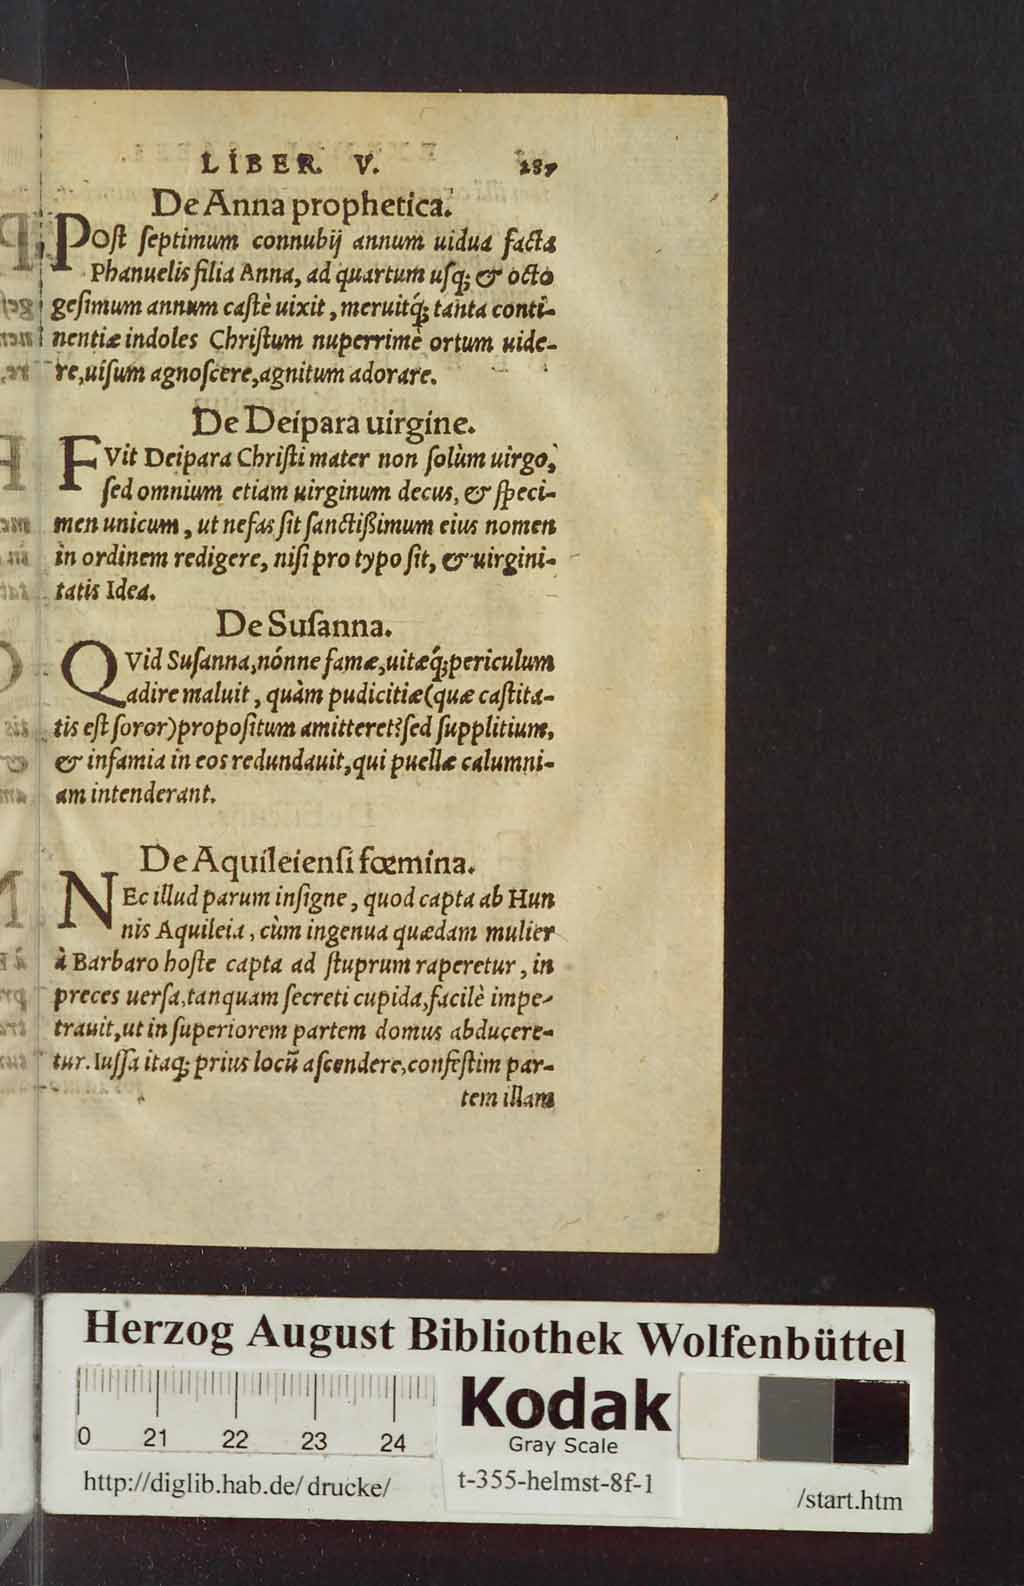 LIBER V. 287
De Anna prophetica.
POſt ſeptimum connubij annum uidua facta
Phanuelis filia Anna, ad quartum uſq; & octo
geſimum annum caſtè uixit, meruitq́; tanta conti-
nentiæ indoles Chriſtum nuperrimè ortum uide-
re, uiſum agnoſcere, agnitum adorare.
De Deipara uirgine.
FVit Deipara Chriſti mater non ſolùm uirgo,
ſed omnium etiam uirginum decus, & ſpeci-
men unicum, ut nefas ſit ſanctißimum eius nomen
in ordinem redigere, niſi pro typo ſit, & uirgini-
tatis Idea.
De Suſanna.
QVid Suſanna, nónne famæ, uitæq́; periculum
adire maluit, quàm pudicitiæ (quæ caſtita-
tis eſt ſoror) propoſitum amitteret? ſed ſupplitium,
& infamia in eos redundauit, qui puellæ calumni-
am intenderant.
De Aquileienſi fœmina.
NEc illud parum inſigne, quod capta ab Hun
nis Aquileia, cùm ingenua quædam mulier
à Barbaro hoſte capta ad ſtuprum raperetur, in
preces uerſa, tanquam ſecreti cupida, facilè impe-
trauit, ut in ſuperiorem partem domus abducere-
tur. Iuſſa itaq; prius locũ aſcendere, confeſtim par-
tem illam
Herzog August Bibliothek Wolfenbüttel
0 21 22 23 24
Kodak
Gray Scale
http://diglib.hab.de/drucke/
t-355-helmst-8f-1
/start.htm